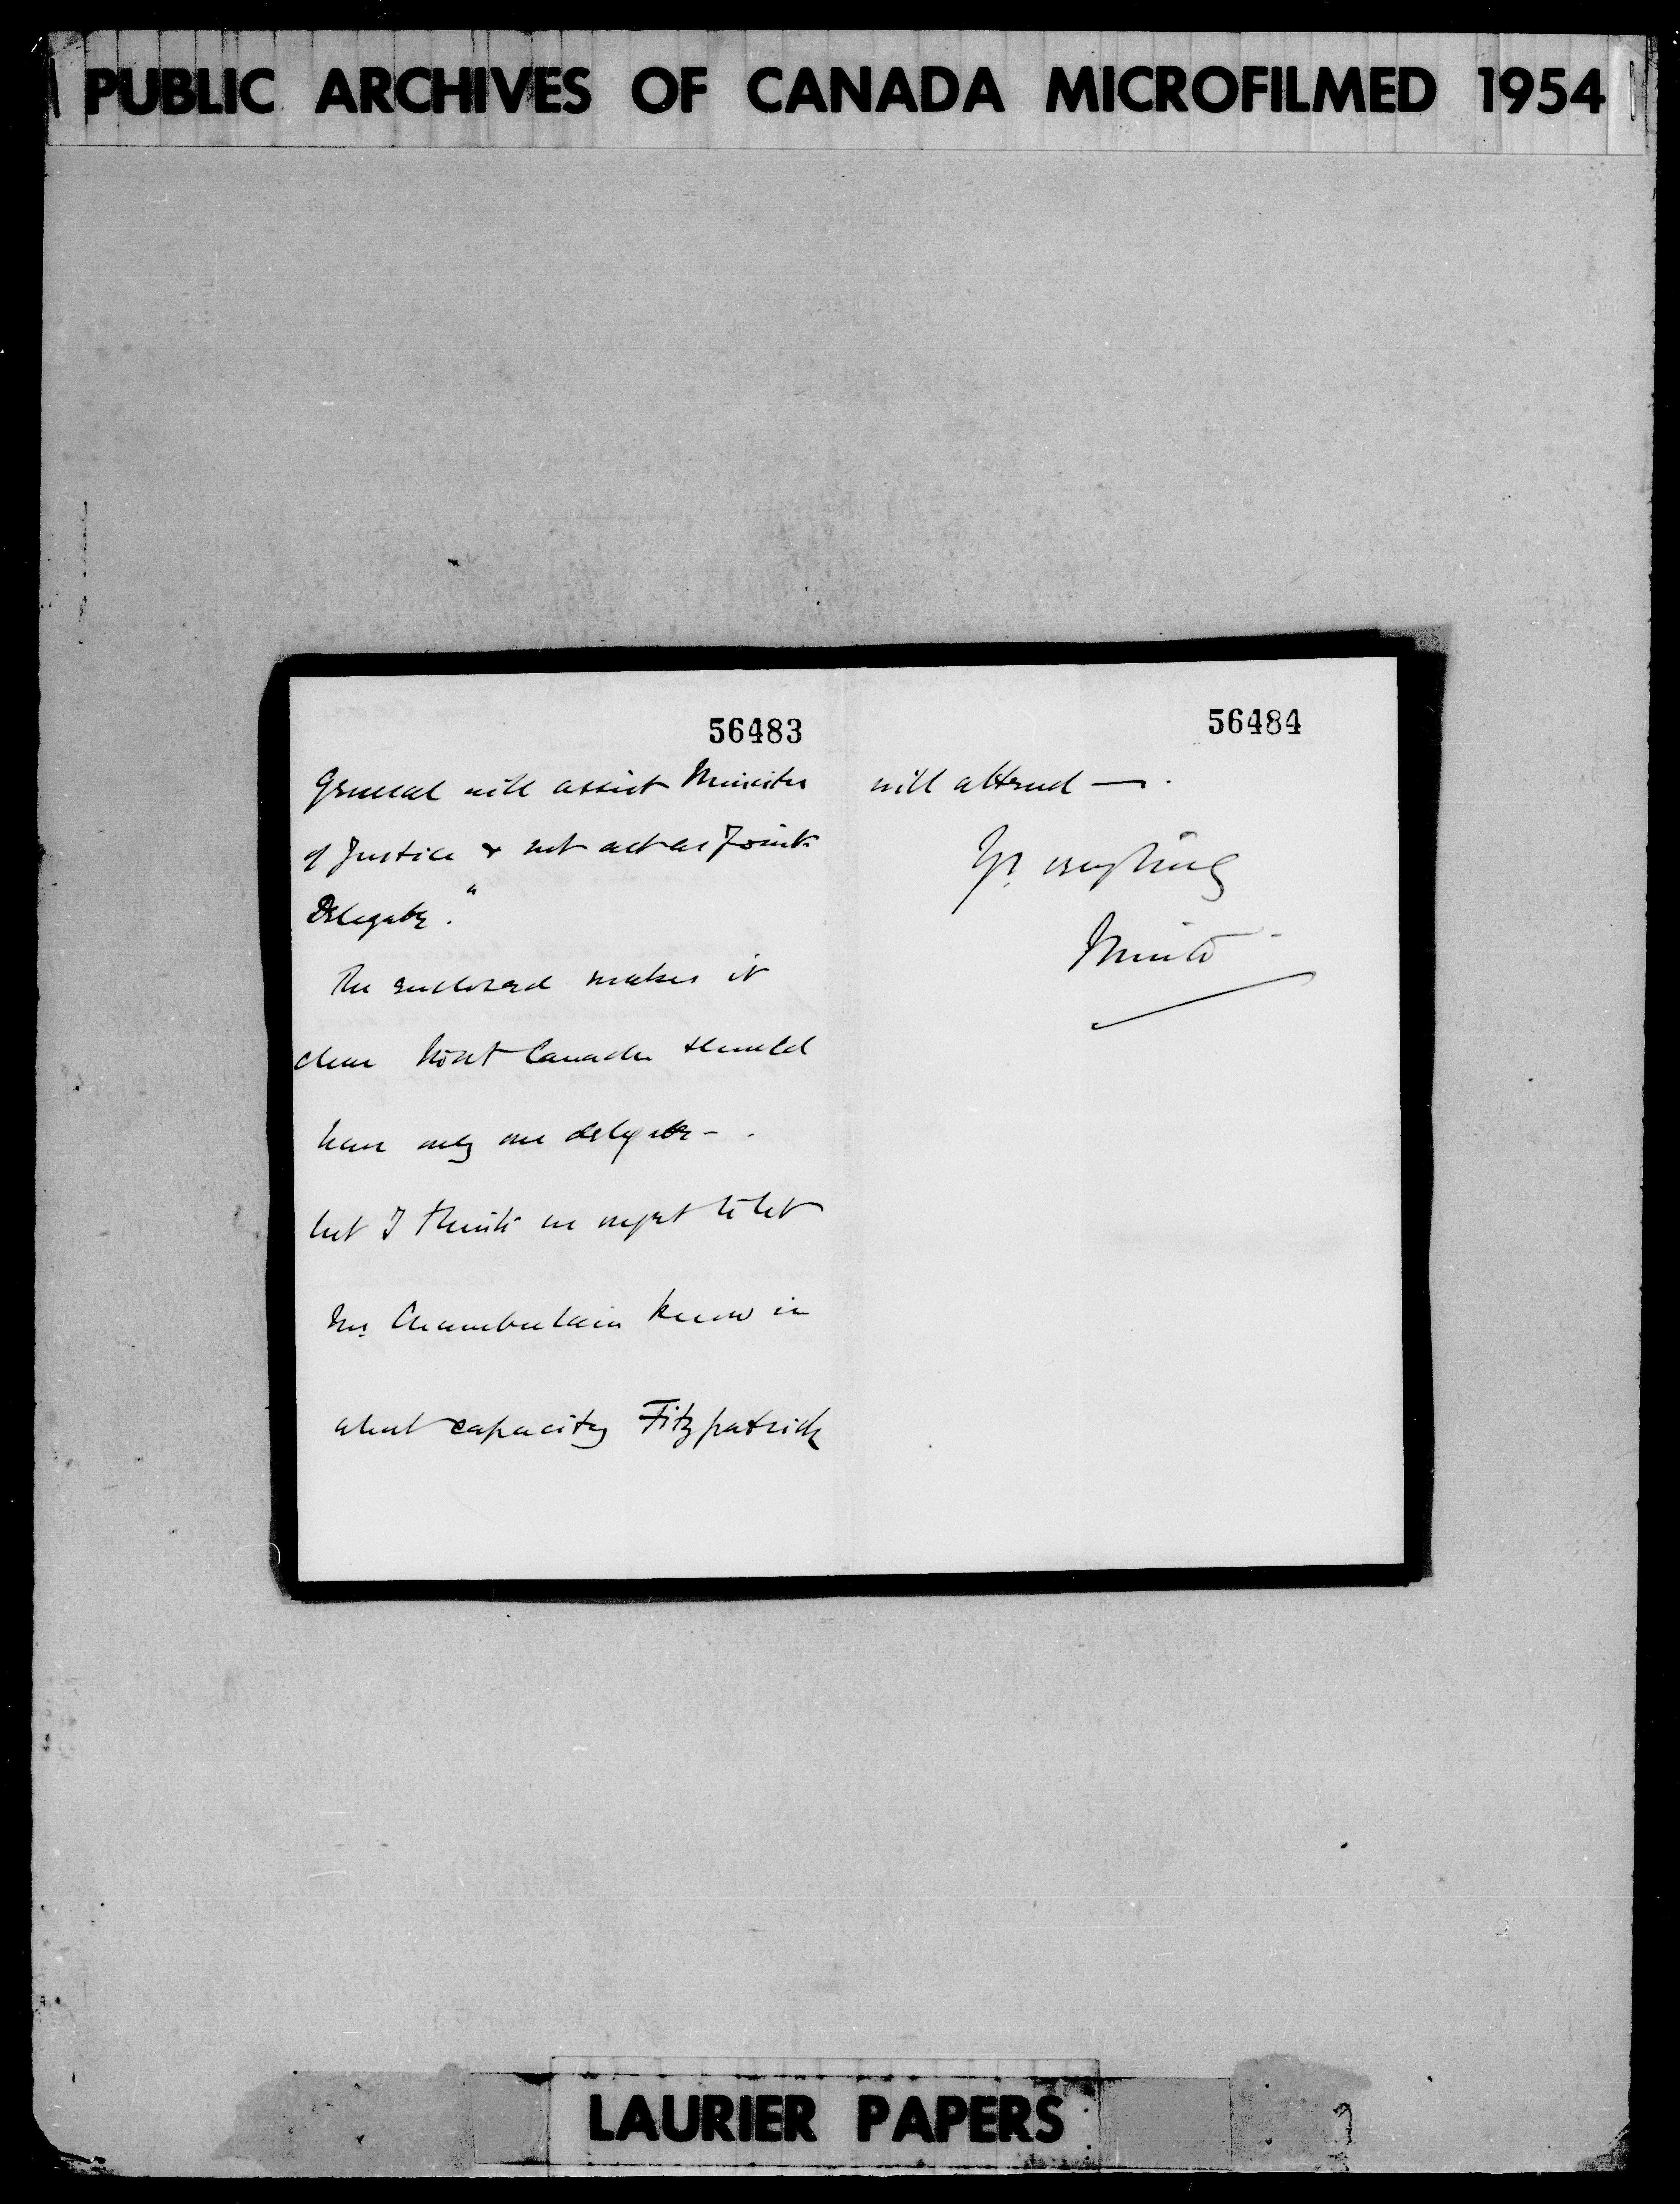 PUBLIC ARCHIVES OF CANADA MICROFILMED 1954
56483
General will assist Minister
of Justice & not act as Joint
Delegate."
The enclosed makes it
clear that Canada should
have only one delegate - .
but I think we ought to let
Mr. Chamberlain know in
what capacity Fitzpatrick
56484
will attend — .
Yrs. everything
Minto
LAURIER PAPERS